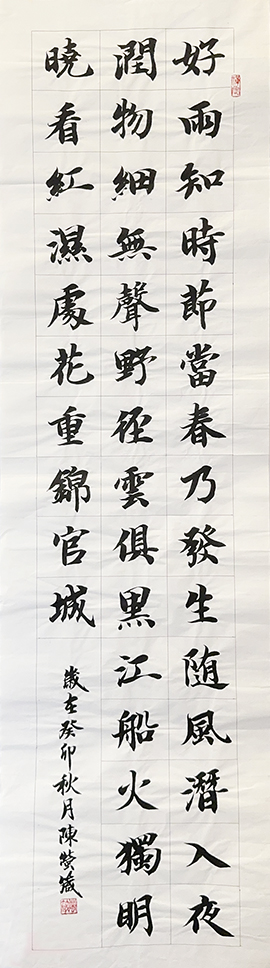 好雨知時節當春乃發生随風潛入夜
潤物細無聲野徑雲俱黑江船火獨明
曉看紅濕處花重錦官城
歲在癸卯秋月陳瑩箴